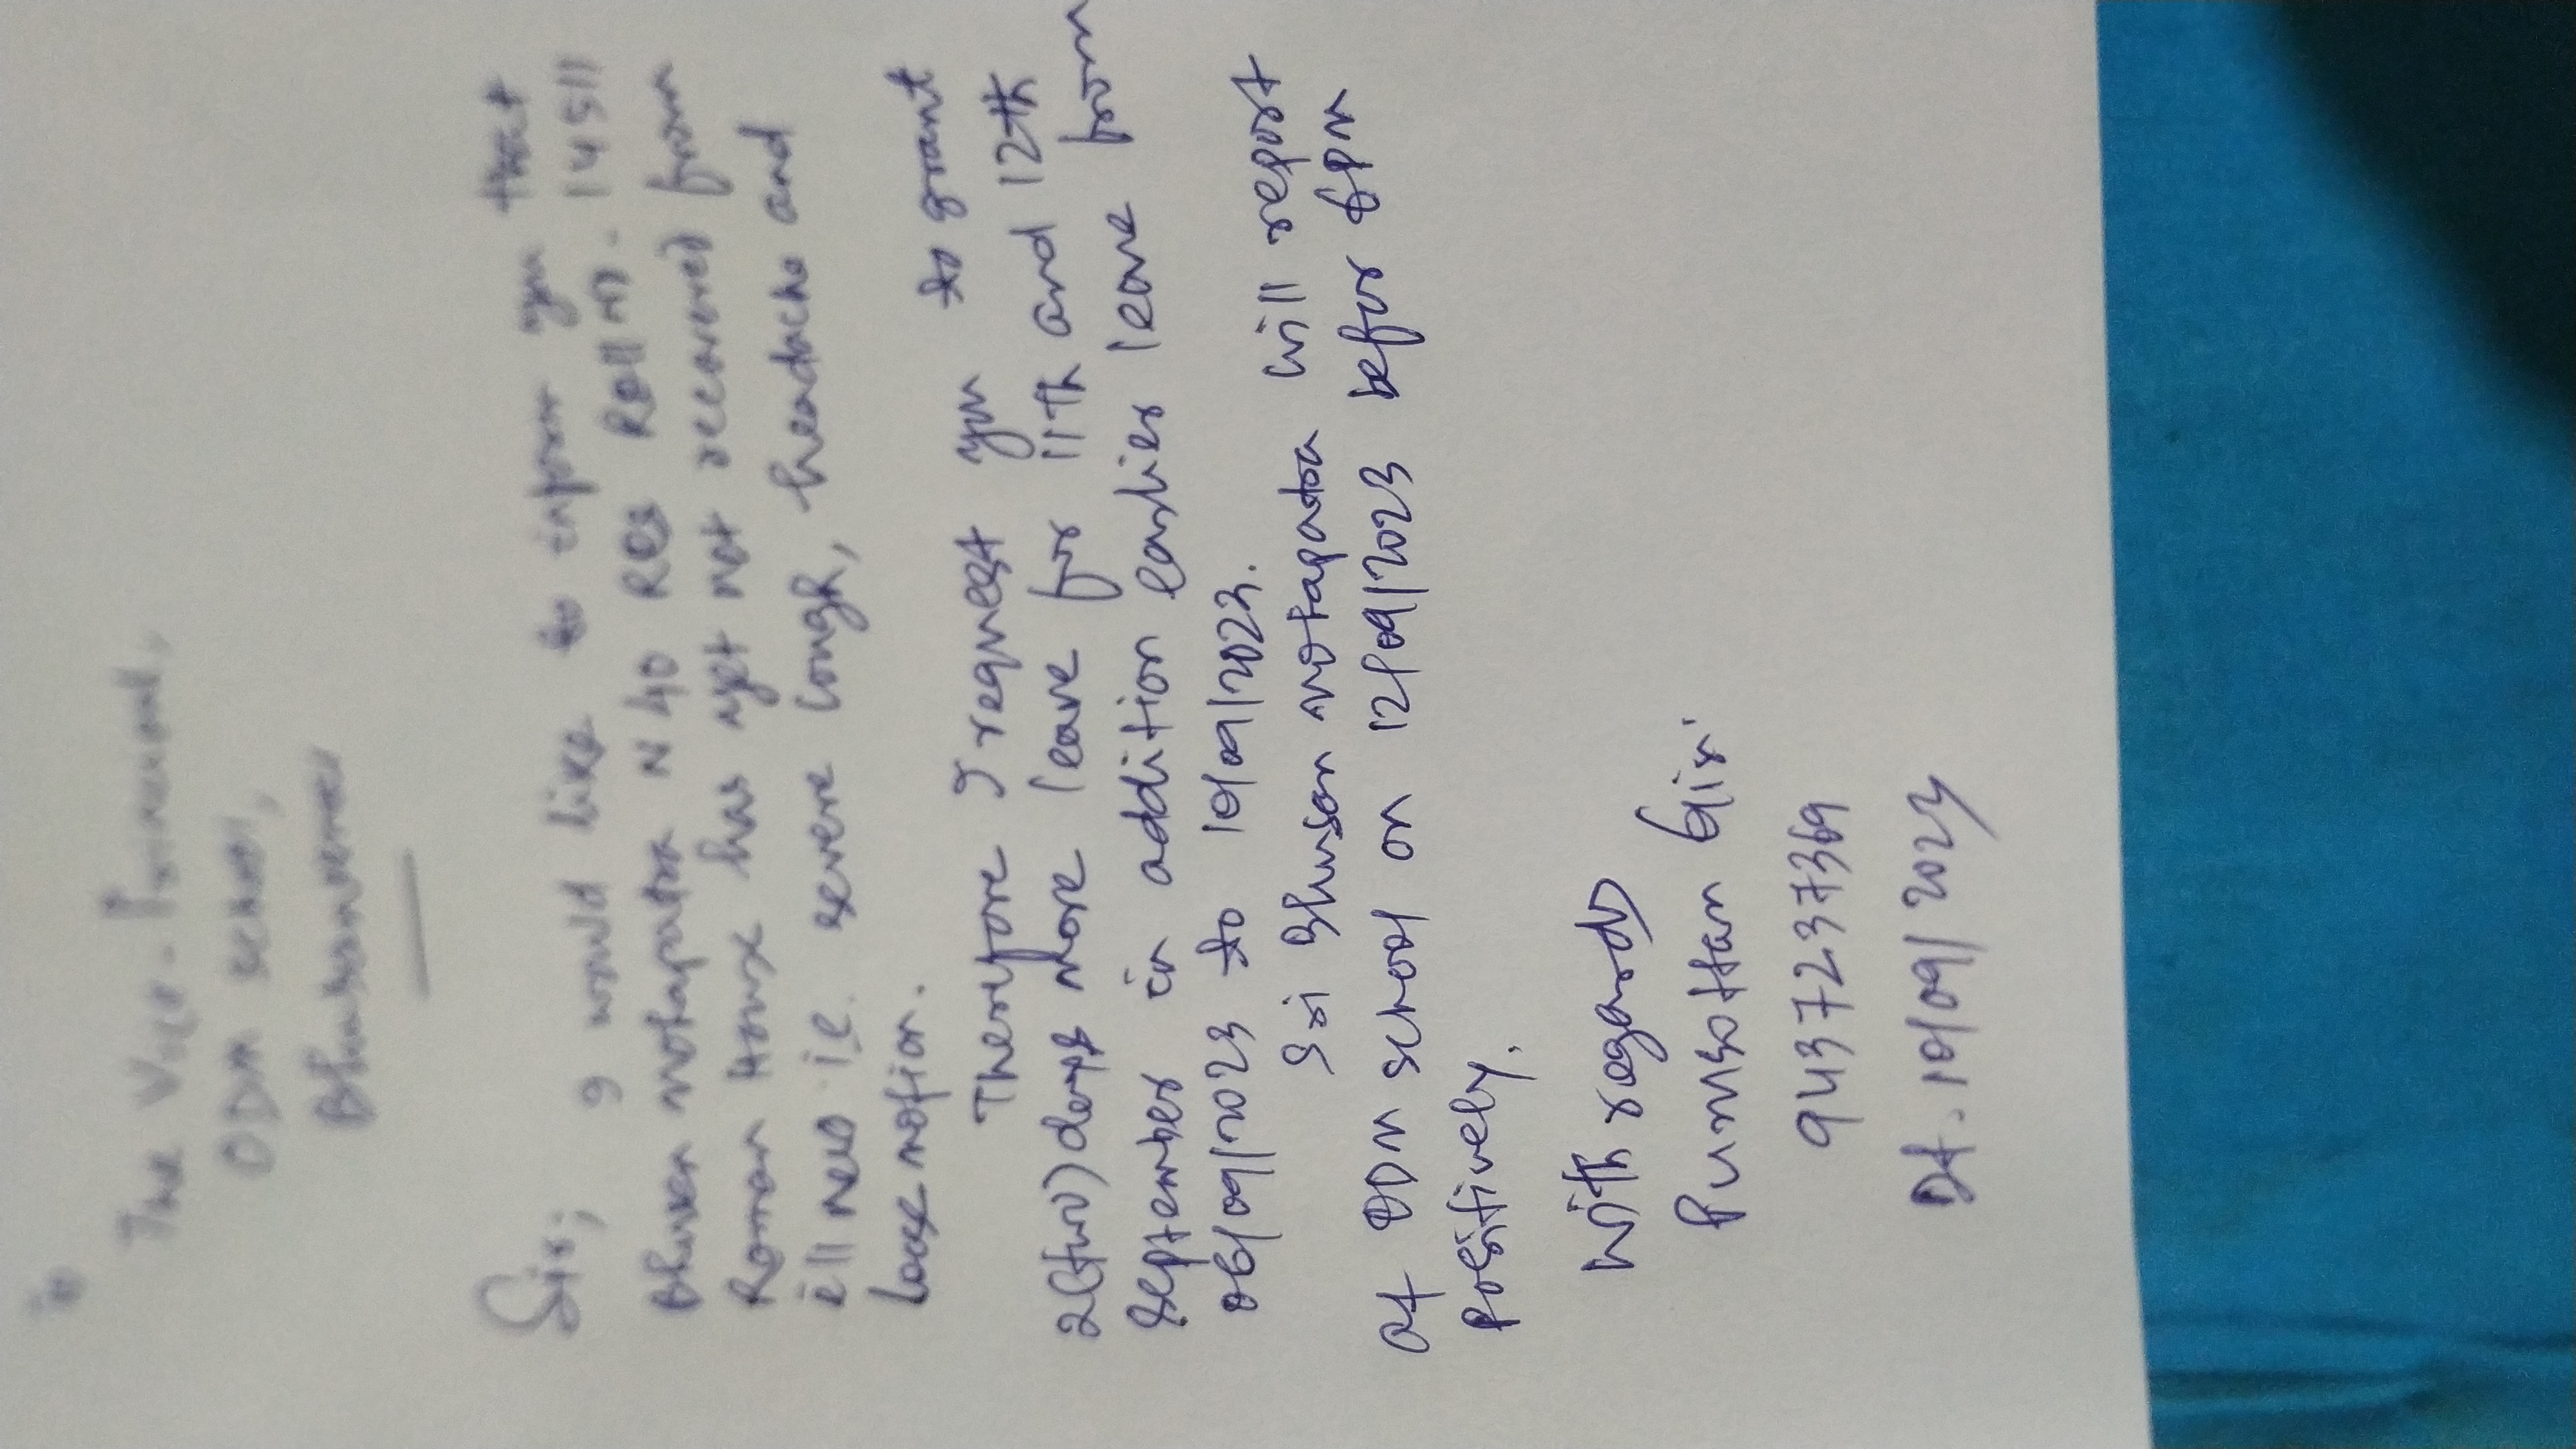 To
The Vice-Principal,
ODM School,
Bhubaneswar
Sir,
I would like to inform you that
Bhuvan Mohapatra N 40 Roll no. 14511
Roman House has yet not recovered from
ill ness ie. severe cough, headache and
loose motion.
Therefore I request you to grant
2(two)days more leave for 11th and 12th
September in addition earlier leave from
06/09/2023 to 10/09/2023.
Sri Bhuvan Mohapatra will report
at ODM School on 12/09/2023 before 6pm
positively.
With regards
Purusottam Giri
9437237369
Dt. 10/09/2023